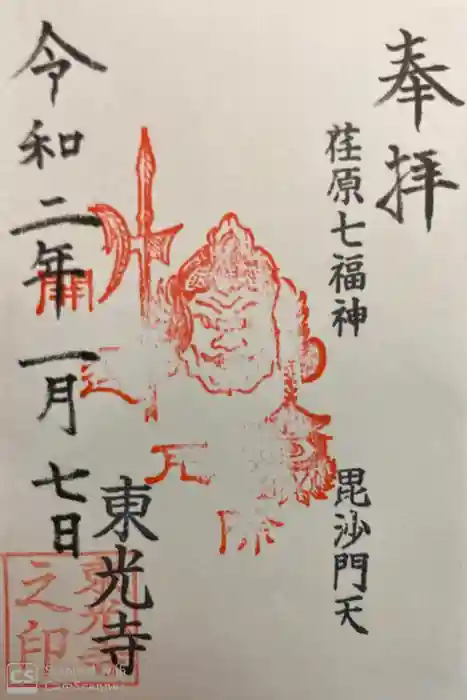 奉拝
荏原七福神
毘沙門天
東光寺
令和二年一月七日
東光寺
之印
CS Scanned with
CamScanner